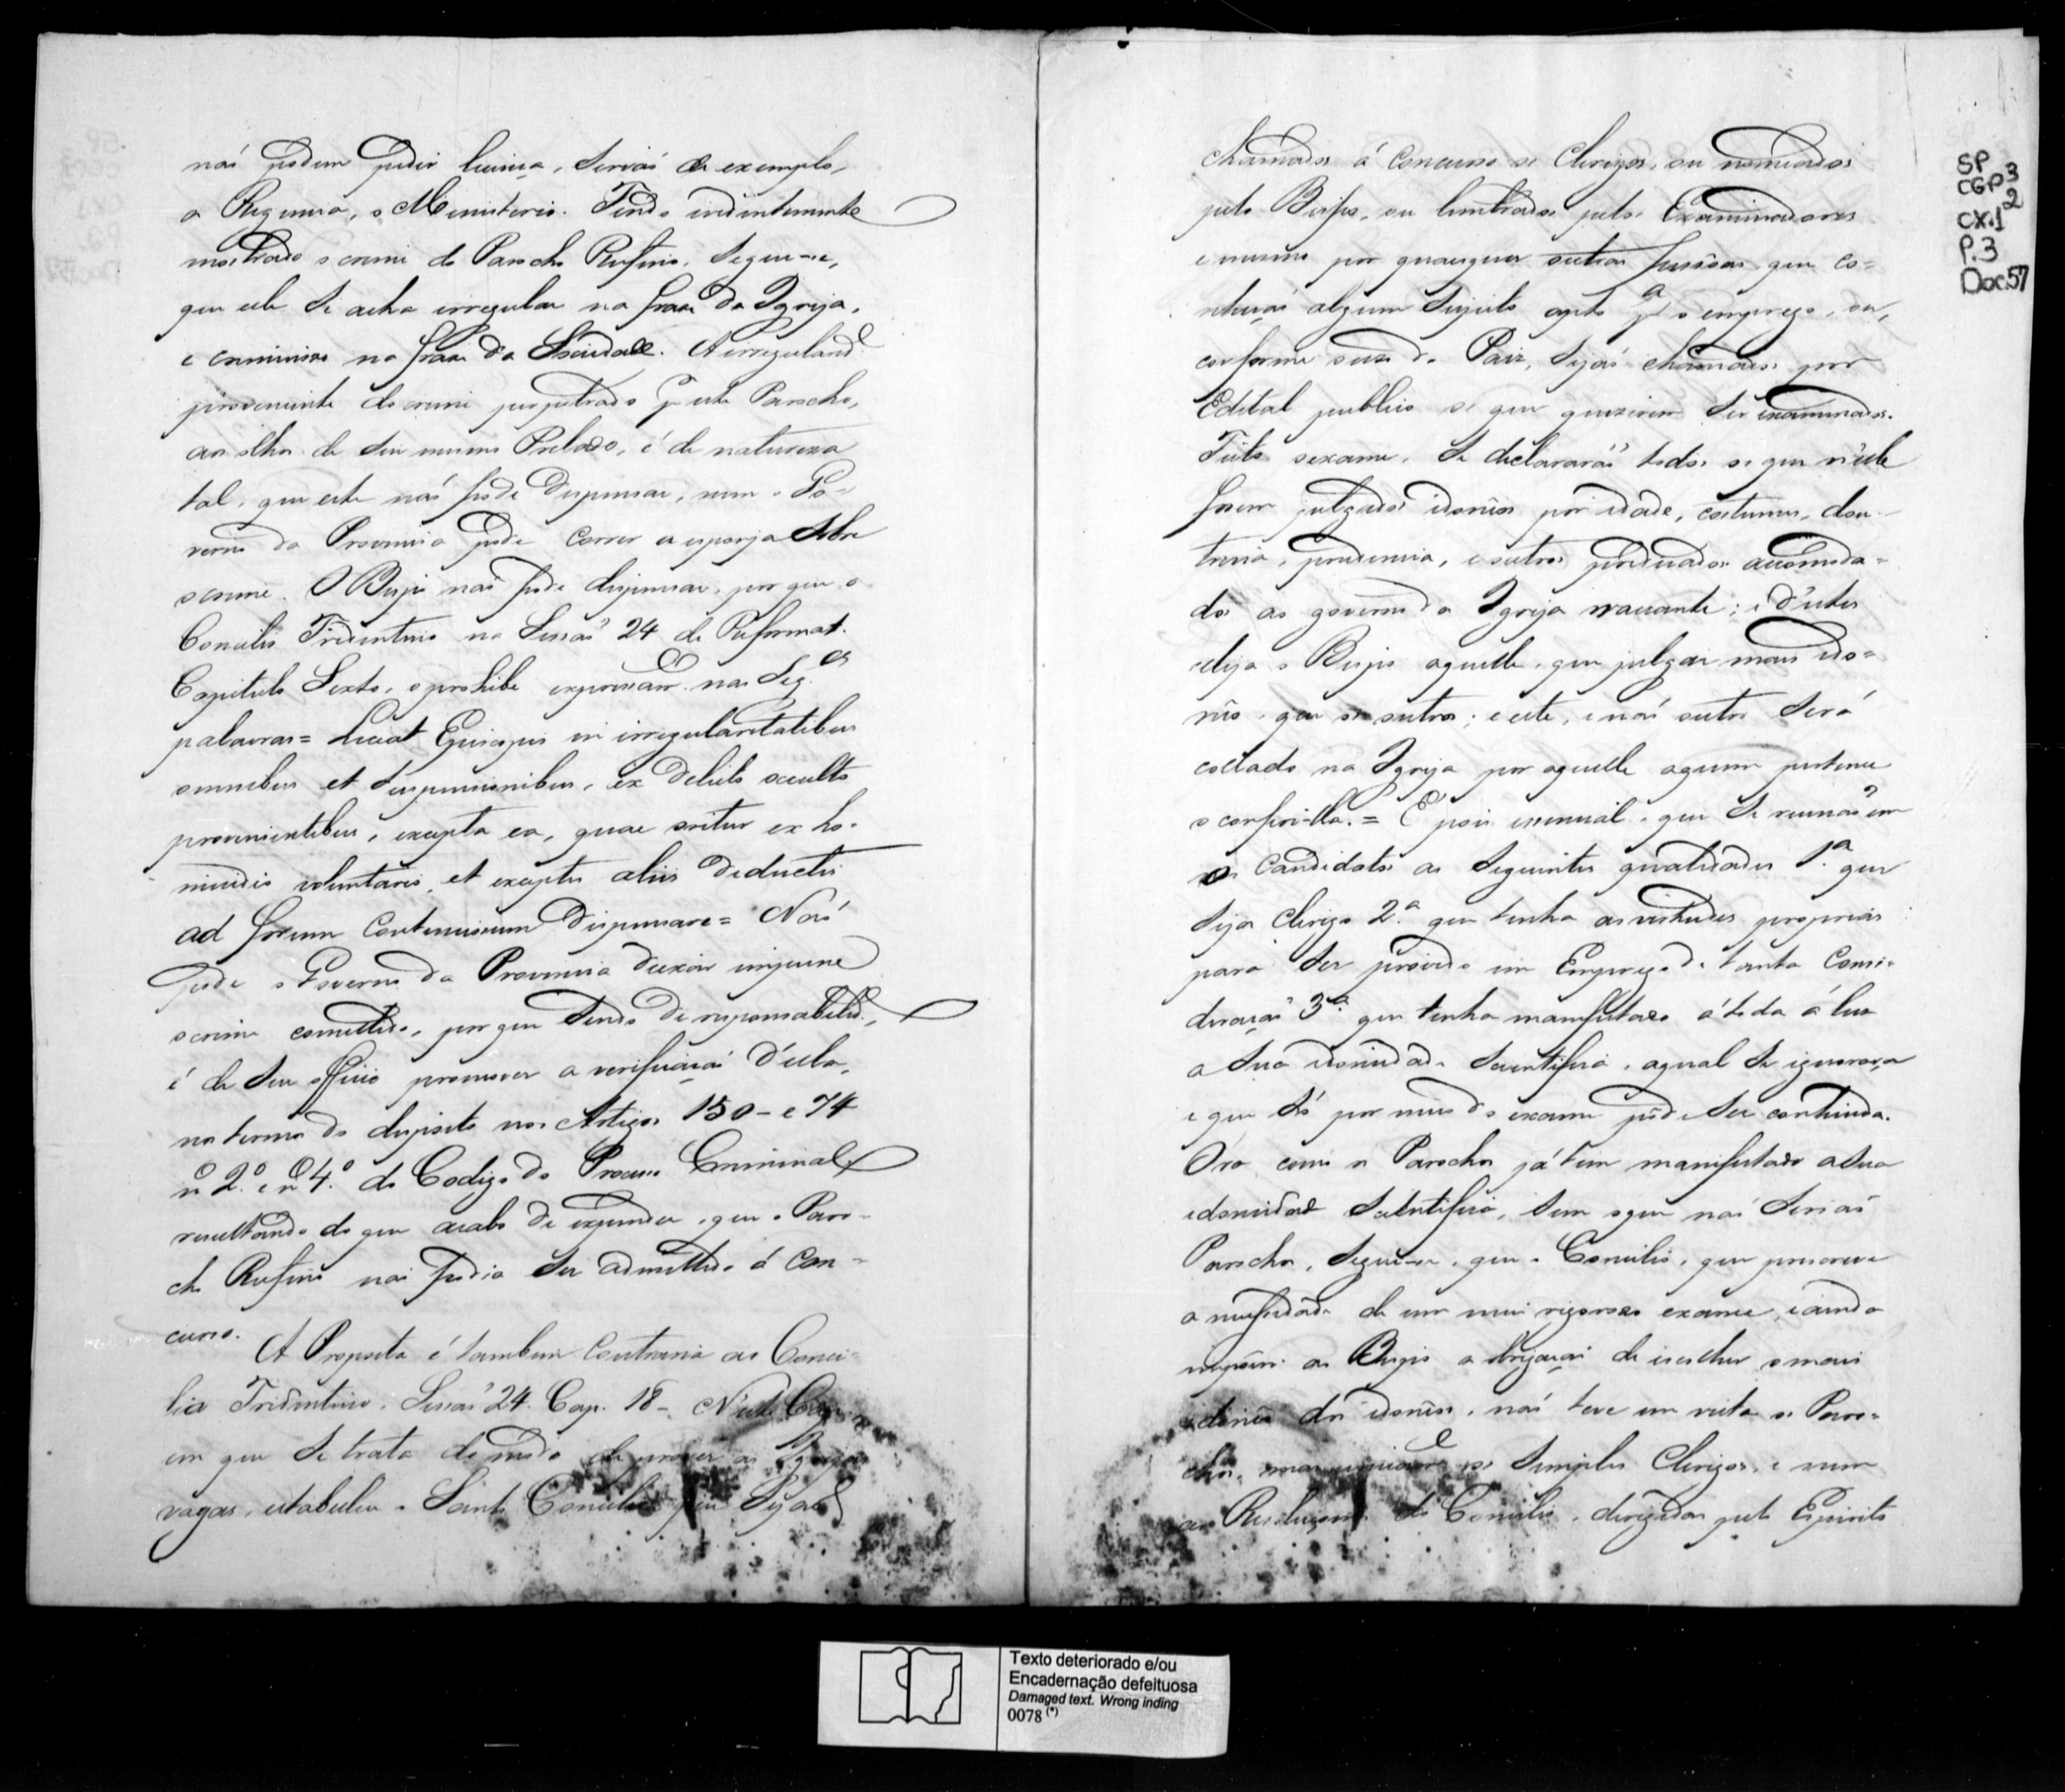 não podem pedir licença, servirá de exemplo,
a Regencia, o Ministerio. Tendo evidentemente
mostrado o crime do Parocho Rufino, segue-se,
que elle se acha irregular na frase da Igreja,
e criminoso na frase da Sociedade. A irregularid.e
proveniente do crime perpetrado p.r este Parocho,
aos olhos de seu mesmo Prelado, é de natureza
tal, que este não pode dispensar, nem o Go-
verno da Provincia pode correr a esponja sobre
o crime. O Bispo não pode dispensar, por que o
Concilio Tridentino na Sessaõ 24 de Reformat.
Capitulo Sexto, o prohibe expressam.e nas seg.es
palavras = Liceat Episcopis in irregularitatibus
omnibus et suspensionibus, ex delicto occulto
provenientibus, excepta ea, quae oritur ex ho-
micidio voluntario, et exceptis aliis deductis
ad forum contensiosum dispensare = Não
pode o Governo da Provincia deixar impune
o crime comettido, por que sendo de responsabilid.e,
é de seu officio promover a verificação d'ella,
na forma do disposto nos Artigos 150 - e 74
n.o 2.o e n.o 4.o do Codigo do Processo Criminal
resultando do que acabo de expender, que o Paro-
cho Rufino não podia ser admittido á con-
curso.
A Proposta é tambem contraria ao Conci-
lio Tridentino, Sessaõ 24. Cap. 18 - N'este Cap.
em que se trata do modo de prover as Igrejas
vagas, estabelece o Santo Concilio que sejaõ
chamados á concurso os Clerigos, ou nomeados
pelo Bispo, ou lembrados pelos Examinadores
e mesmo por quaesquer outras pessoas, que co-
nheção algum sujeito apto p.a o emprego, ou,
conforme o uso do Paiz, sejaõ chamados por
Edital publico os que quizerem ser examinados.
Feito o exame, se declararáõ todos os que n'elle
forem julgados idoneos por idade, costumes, dou-
trina, prudencia, e outros predicados accomoda-
dos ao governo da Igreja vacante; e d'estes
elija o Bispo aquelle, que julgar mais ido-
neo, que os outros; e este, e não outro será
collado na Igreja por aquelle aquem pertence
o conferi-lla. = É pois essencial, que se reunaõ em
os Candidatos as seguintes qualidades 1.a que
seja Clerigo 2.a que tenha as virtudes proprias
para ser provido em Emprego de tanta consi-
deração 3.a que tenha manifestado á toda á luz
a sua idoneidade scientifica, a qual se ignorava
e que só por meio do exame pode ser conhecida.
Ora como os Parochos já tem manifestado a sua
idoneidade scientifica, sem o que não seriaõ
Parochos, segue-se, que o Concilio, que prescreve
a necessidade de um mui rigoroso exame, e ainda
impoem ao Bispo a obrigação de escolher o mais
idoneo dos idoneos, não teve em vista os Paro-
chos, mas unicam.e os simples Clerigos, e nem
as Resoluçoens do Concilio, dirigidas pelo Espirito
SP
CGP3
CX.12
P.3
Doc.57
Texto deteriorado e/ou
Encadernação defeituosa
Damaged text. Wrong inding
0078 (*)